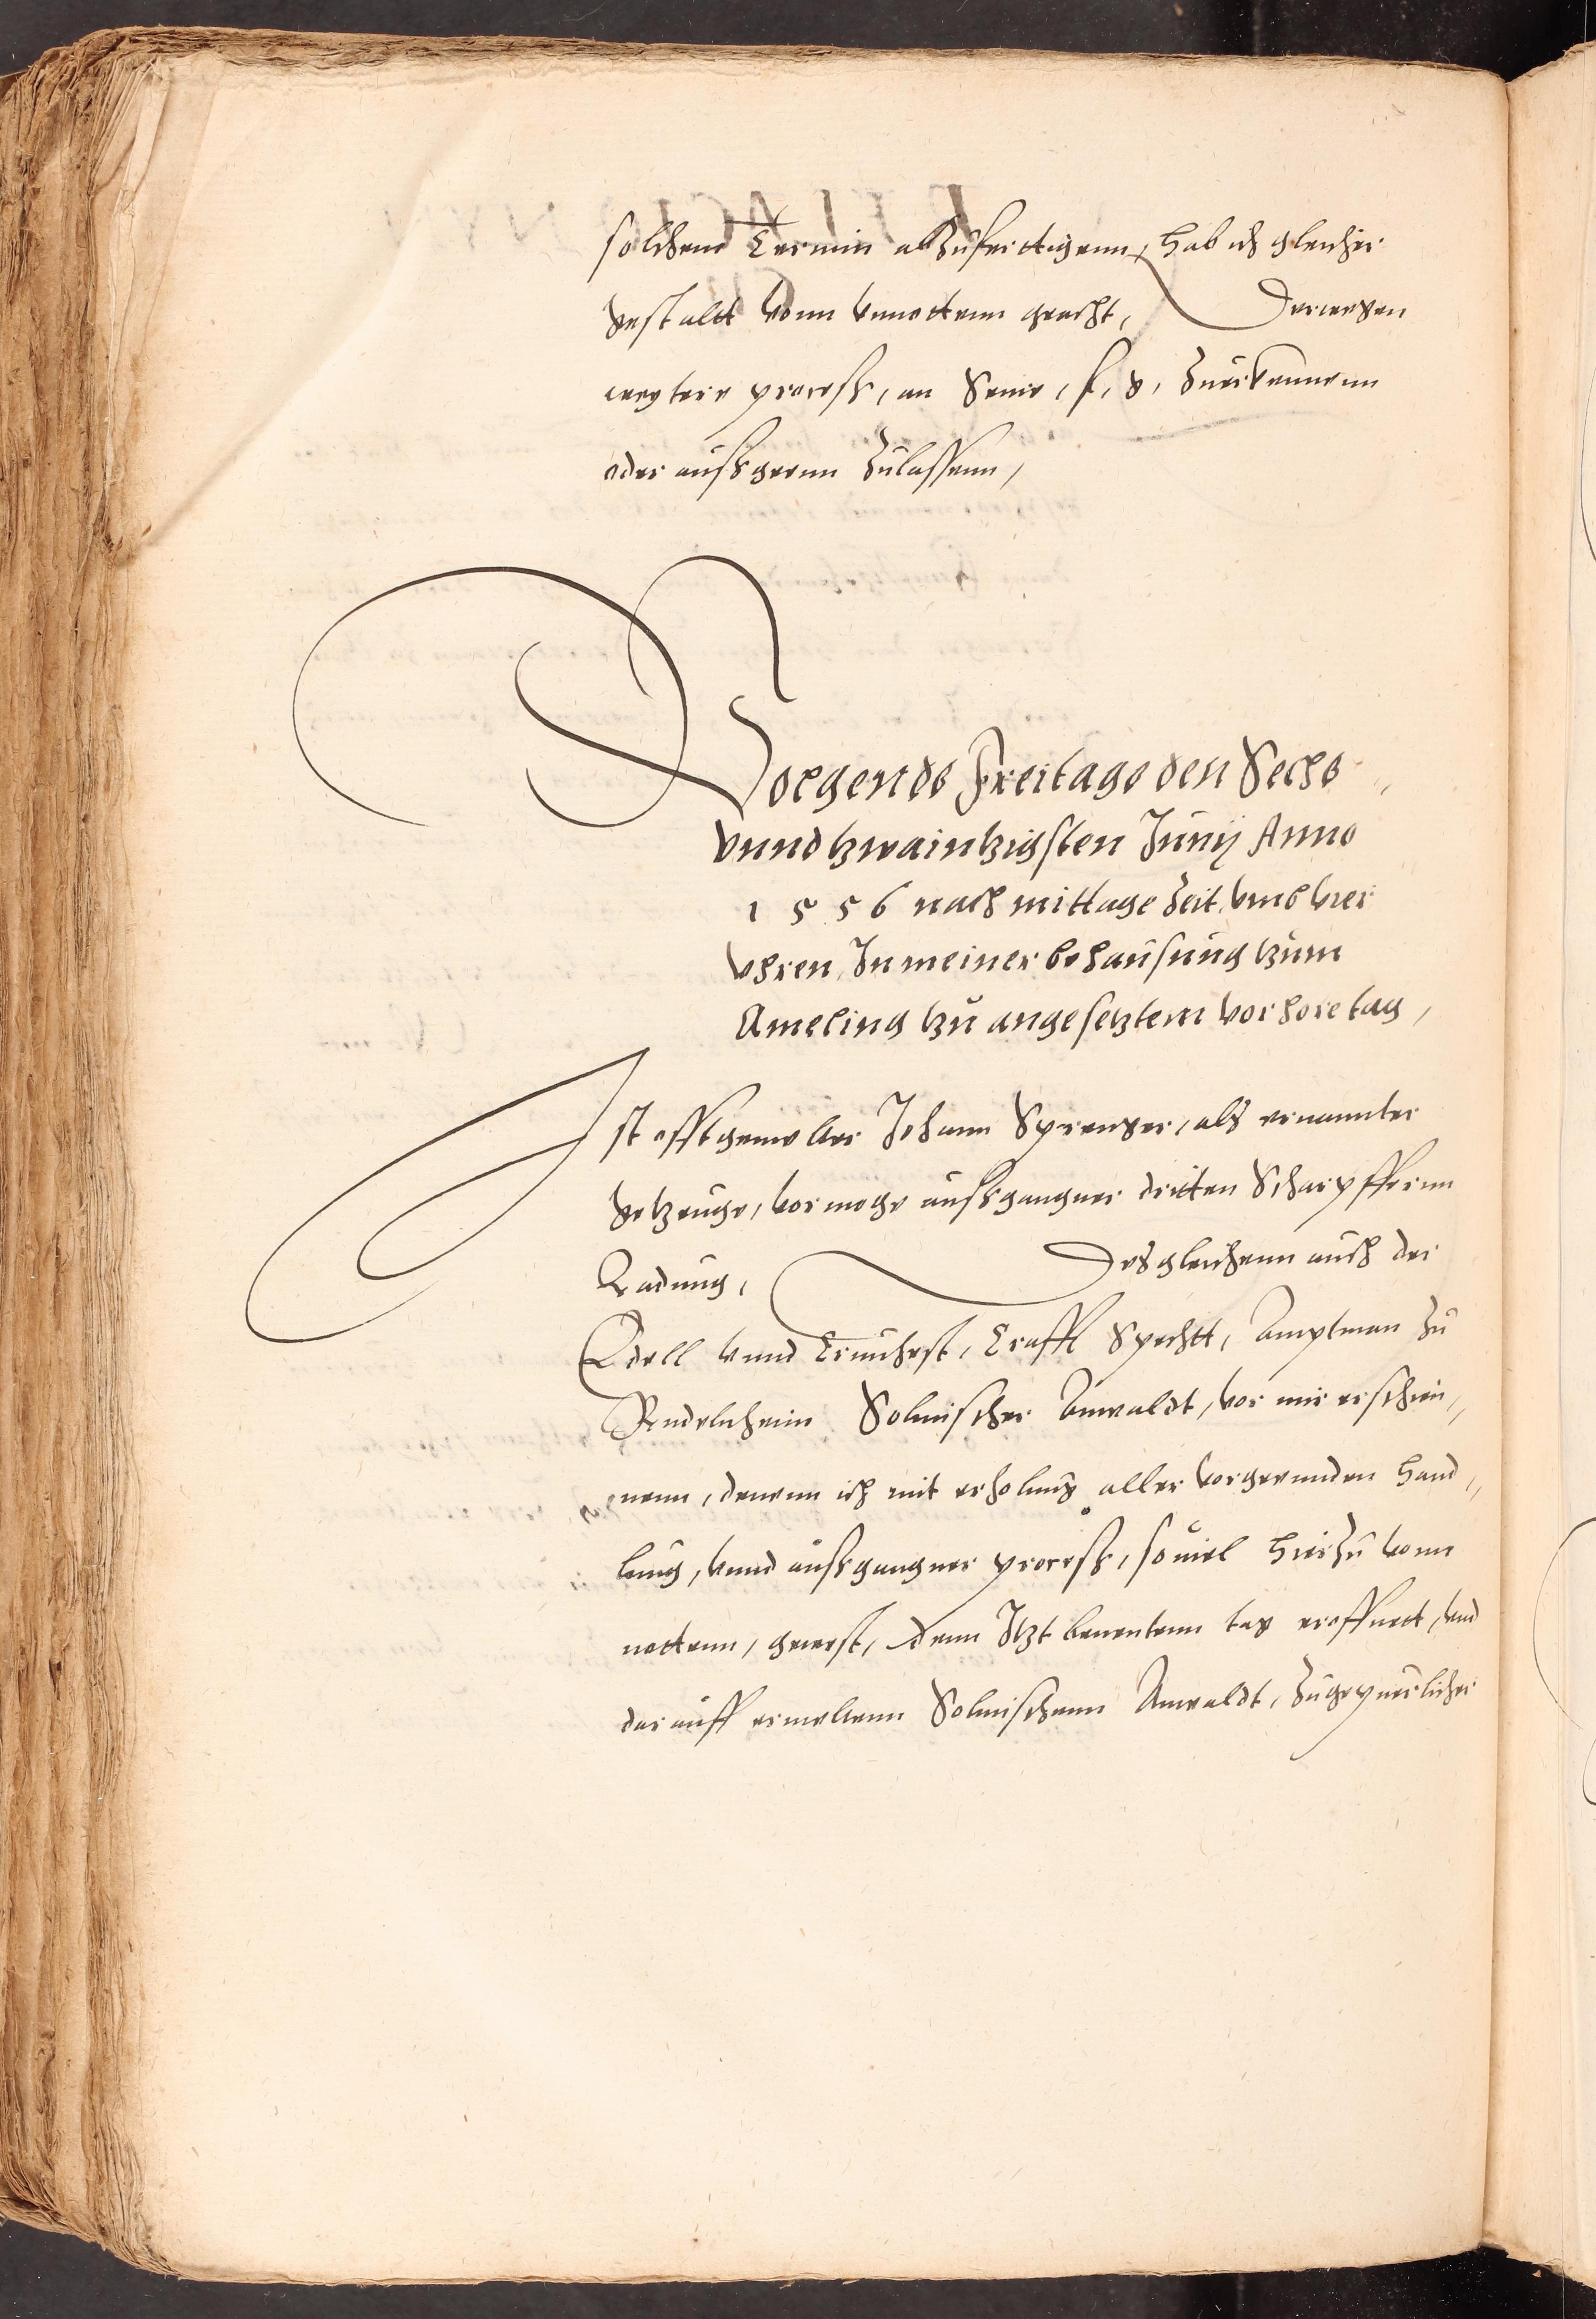 solchem Termin abzufertigenn, hab ich gleicher
gestaltt vonn unnottenn geacht, Derwegen
weytere process, an Seine, f, g, zuerkennenn
oder aussgeenn zulassenn,
Volgends Freitags den Sechs
vnndtzwaintzigsten Junij Anno
1556 nach mittage Zeit vmb vier
vhren, In meiner behausung tzum
Ameling tzu angesetztem vorhore tag,
Ist offtgemelter Johann Sprenger, als ernannter
getzeuge, vormoge aussgangner dritten Scharpffernn
Ladung, Desgleichenn auch der
Edell vnnd Ernuhest, Crafft Spechtt, Amptman zu
Redelnheim Solmischer Anwaldt, vor mir erschien,,
nenn, denenn ich mit erholung aller vorgeennden hand,,
lung, vnnd aussgangner process, souiel hierzu vonn
nottenn, geweest, denn Itzt benentenn tag eroffnett, vnd
darauff ermeltenn Solmischenn Anwaldt, zugepuerlicher